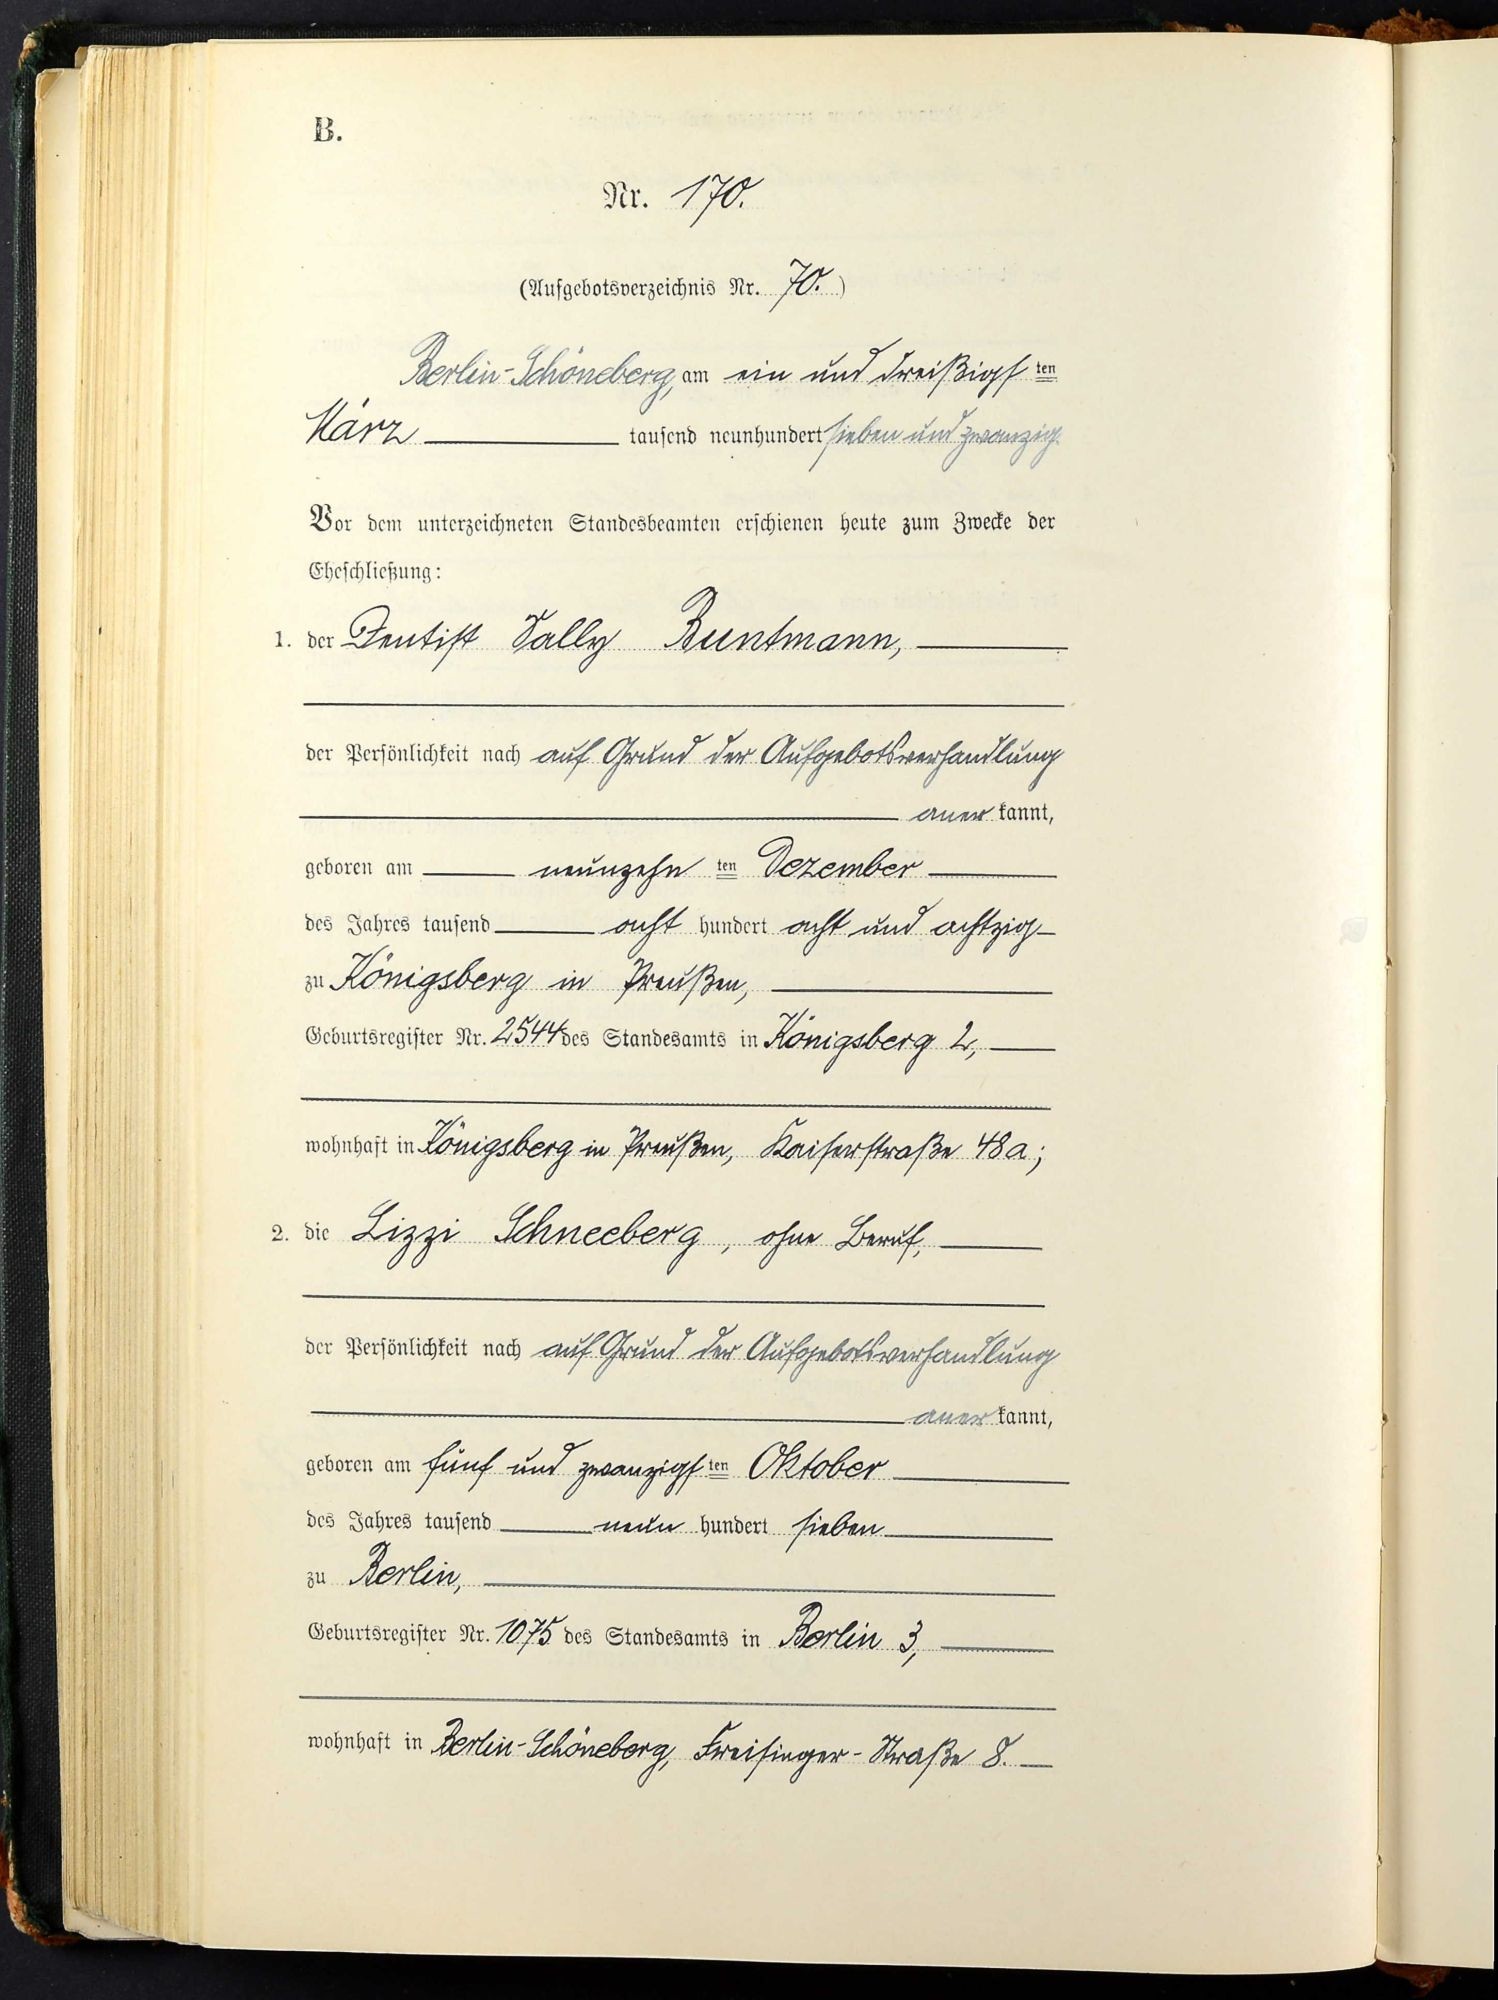 B.
Nr. 170.
(Aufgebotsverzeichnis Nr. 70.)
Berlin-Schöneberg, am ein und dreißigsten
März tausend neunhundert sieben und zwanzig.
Vor dem unterzeichneten Standesbeamten erschienen heute zum Zwecke der
Eheschließung:
1. der Dentist Sally Buntmann,
der Persönlichkeit nach auf Grund der Aufgebotsverhandlung
anerkannt,
geboren am neunzehnten Dezember
des Jahres tausend acht hundert acht und achtzig
zu Königsberg in Preußen,
Geburtsregister Nr. 2544 des Standesamts in Königsberg 2,
wohnhaft in Königsberg in Preußen, Kaiserstraße 48a;
2. die Lizzi Schneeberg, ohne Beruf,
der Persönlichkeit nach auf Grund der Aufgebotsverhandlung
anerkannt,
geboren am fünf und zwanzigsten Oktober
des Jahres tausend neun hundert sieben
zu Berlin,
Geburtsregister Nr. 1075 des Standesamts in Berlin 3,
wohnhaft in Berlin-Schöneberg, Freisinger-Straße 8.